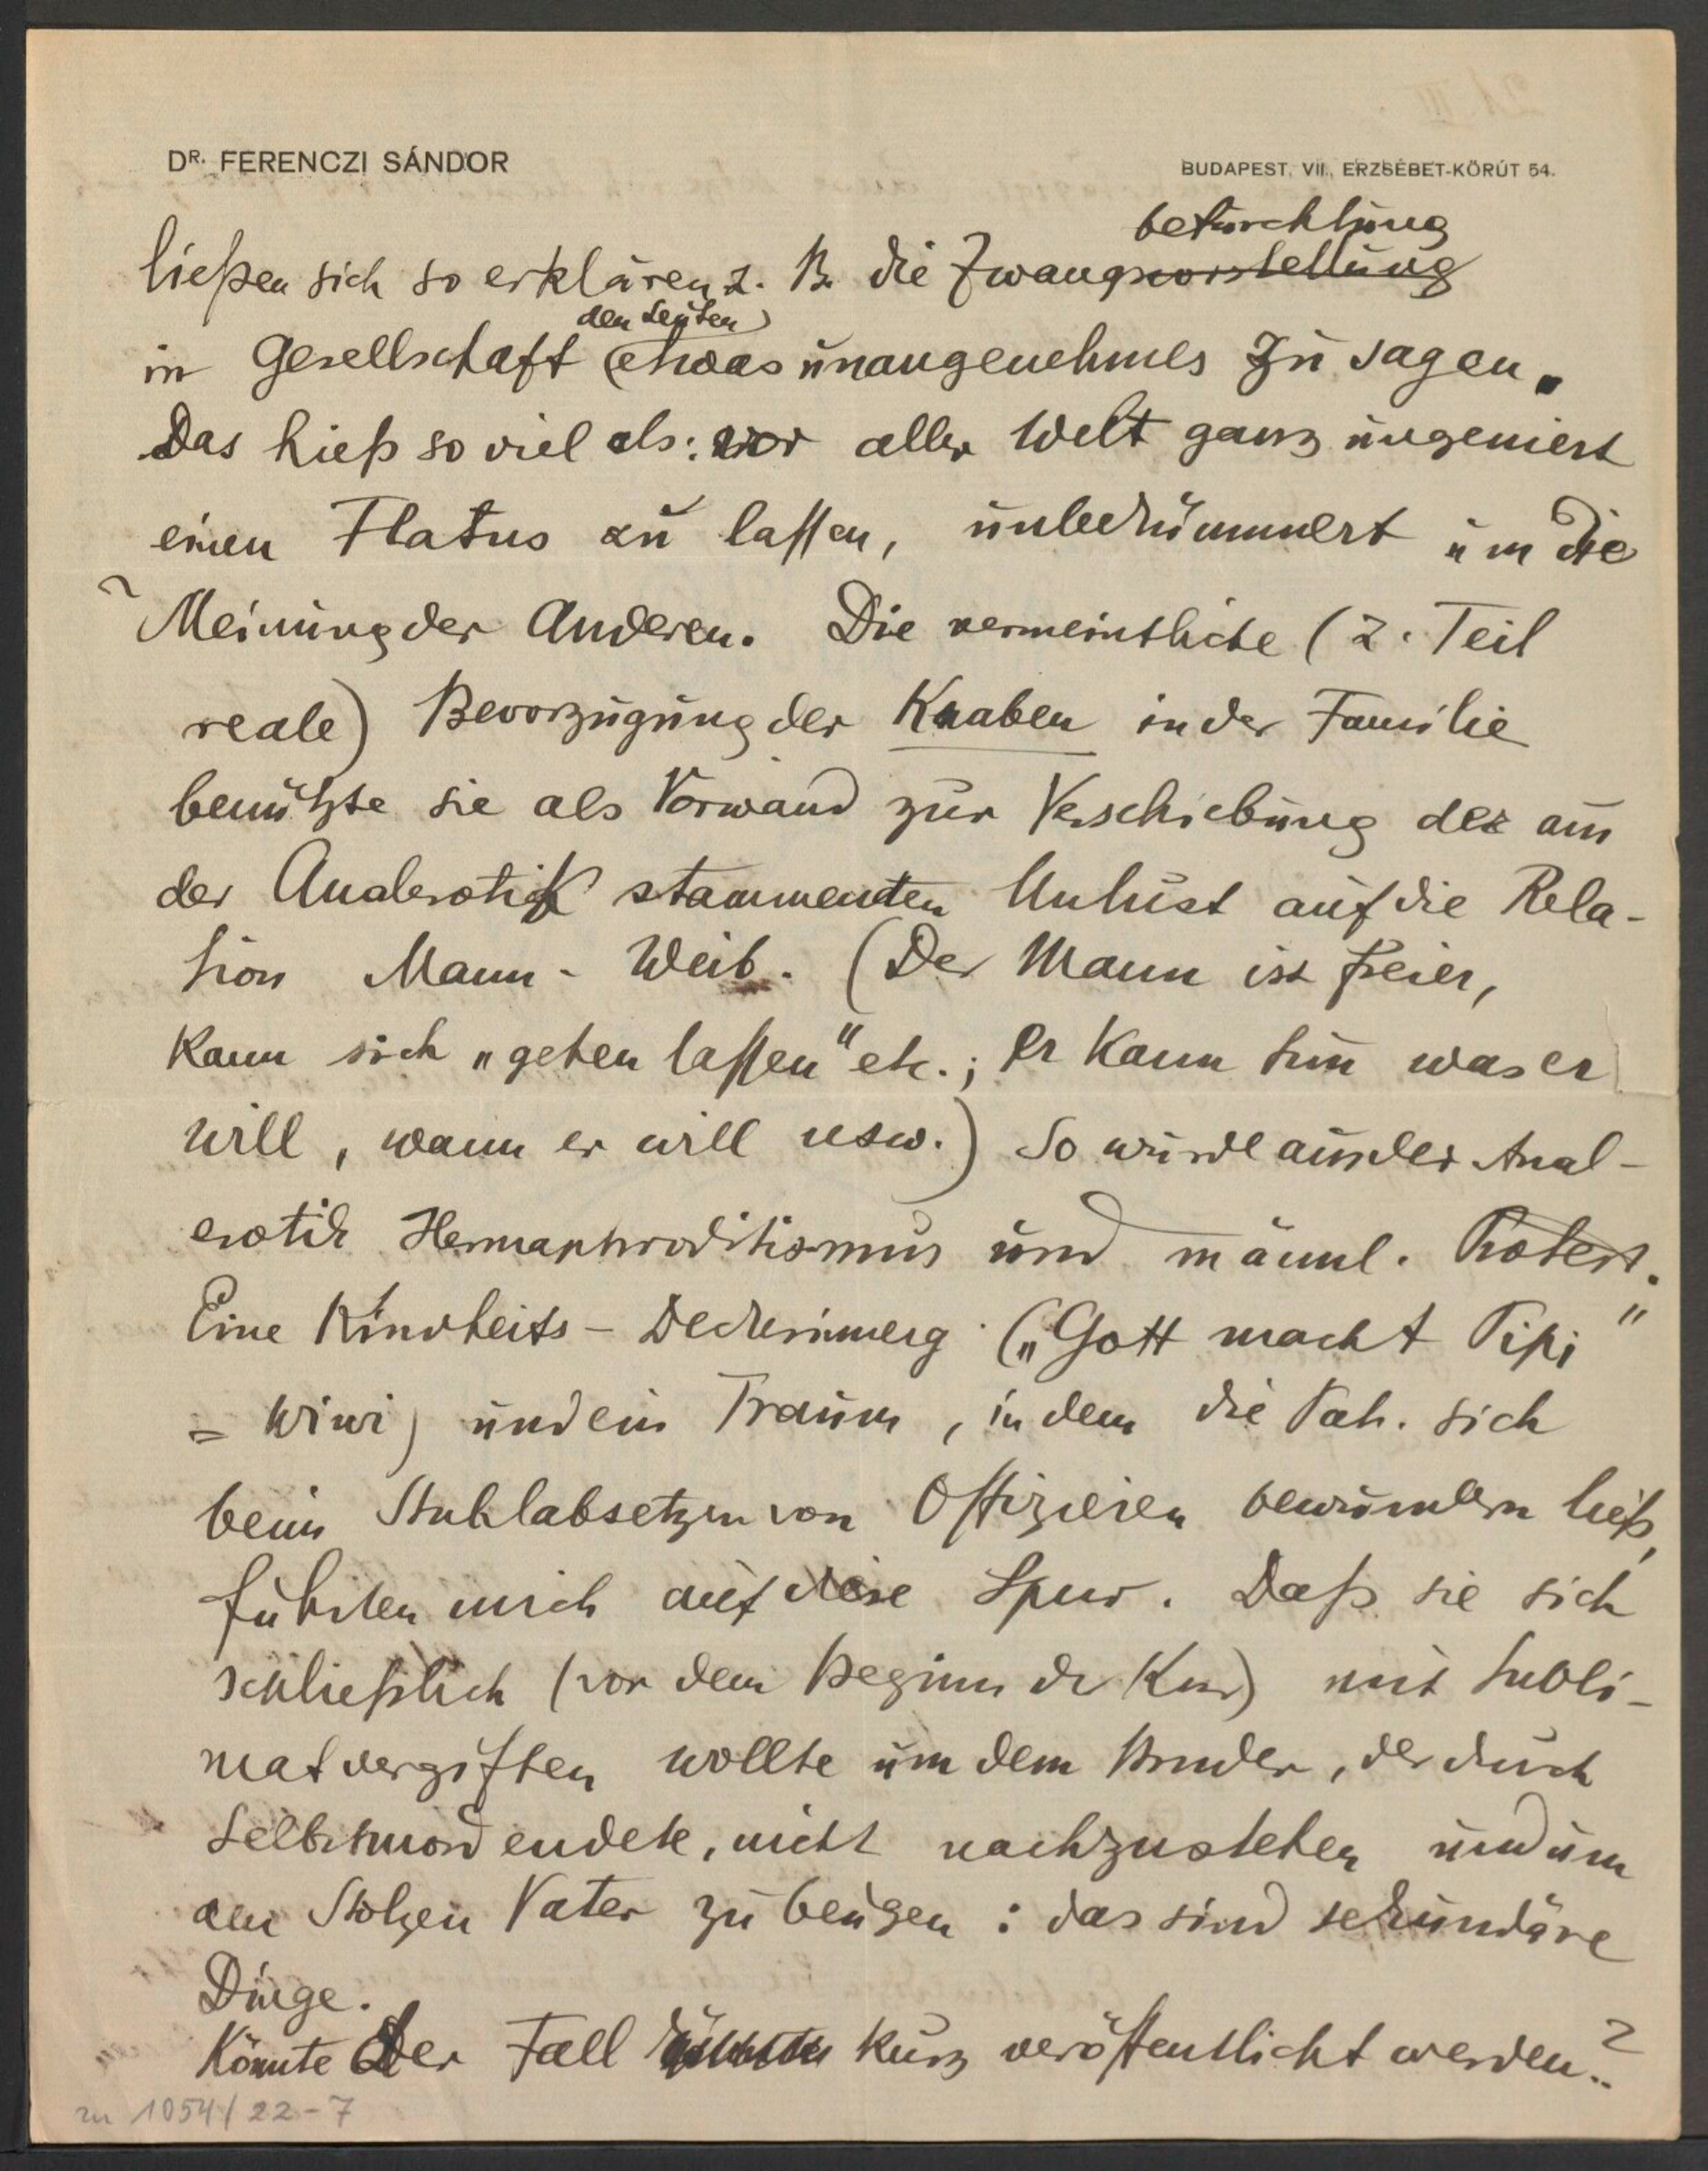 DR. FERENCZI SÁNDOR
BUDAPEST, VII., ERZSÉBET-KÖRÚT 54.
befürchtung
ließen sich so erklären z. B. die Zwangsvorstellung
den Leuten
in Gesellschaft etwas unangenehmes zu sagen.
Das hieß so viel als: vor aller Welt ganz ungeniert
einen Flatus zu lassen, unbekümmert um die
Meinung der Anderen. Die vermeintliche (z. Teil
reale) Bevorzugung der Knaben in der Familie
benützte sie als Vorwand zur Verschiebung der aus
der Analerotik stammenden Unlust auf die Rela-
tion Mann - Weib. (Der Mann ist freier,
kann sich „gehen lassen" etc.; er kann tun was er
will, wann er will usw.) So wurde aus der Anal-
erotik Hermaphroditismus und männl. Protest.
Eine Kindheits - Deckerinnerg („Gott macht Pipi"
= Wiwi) und ein Traum, in dem die Pat. sich
beim Stuhlabsetzen von Offizieren bewundern ließ,
führten mich auf diese Spur. Daß sie sich
schließlich (vor dem Beginn der Kur) mit Subli-
mat vergiften wollte um dem Bruder, der durch
Selbstmord endete, nicht nachzustehen und um
den Stolzen Vater zu beugen: das sind sekundäre
Dinge.
Könnte Der Fall kurz veröffentlicht werden?
zu 1054/22-7